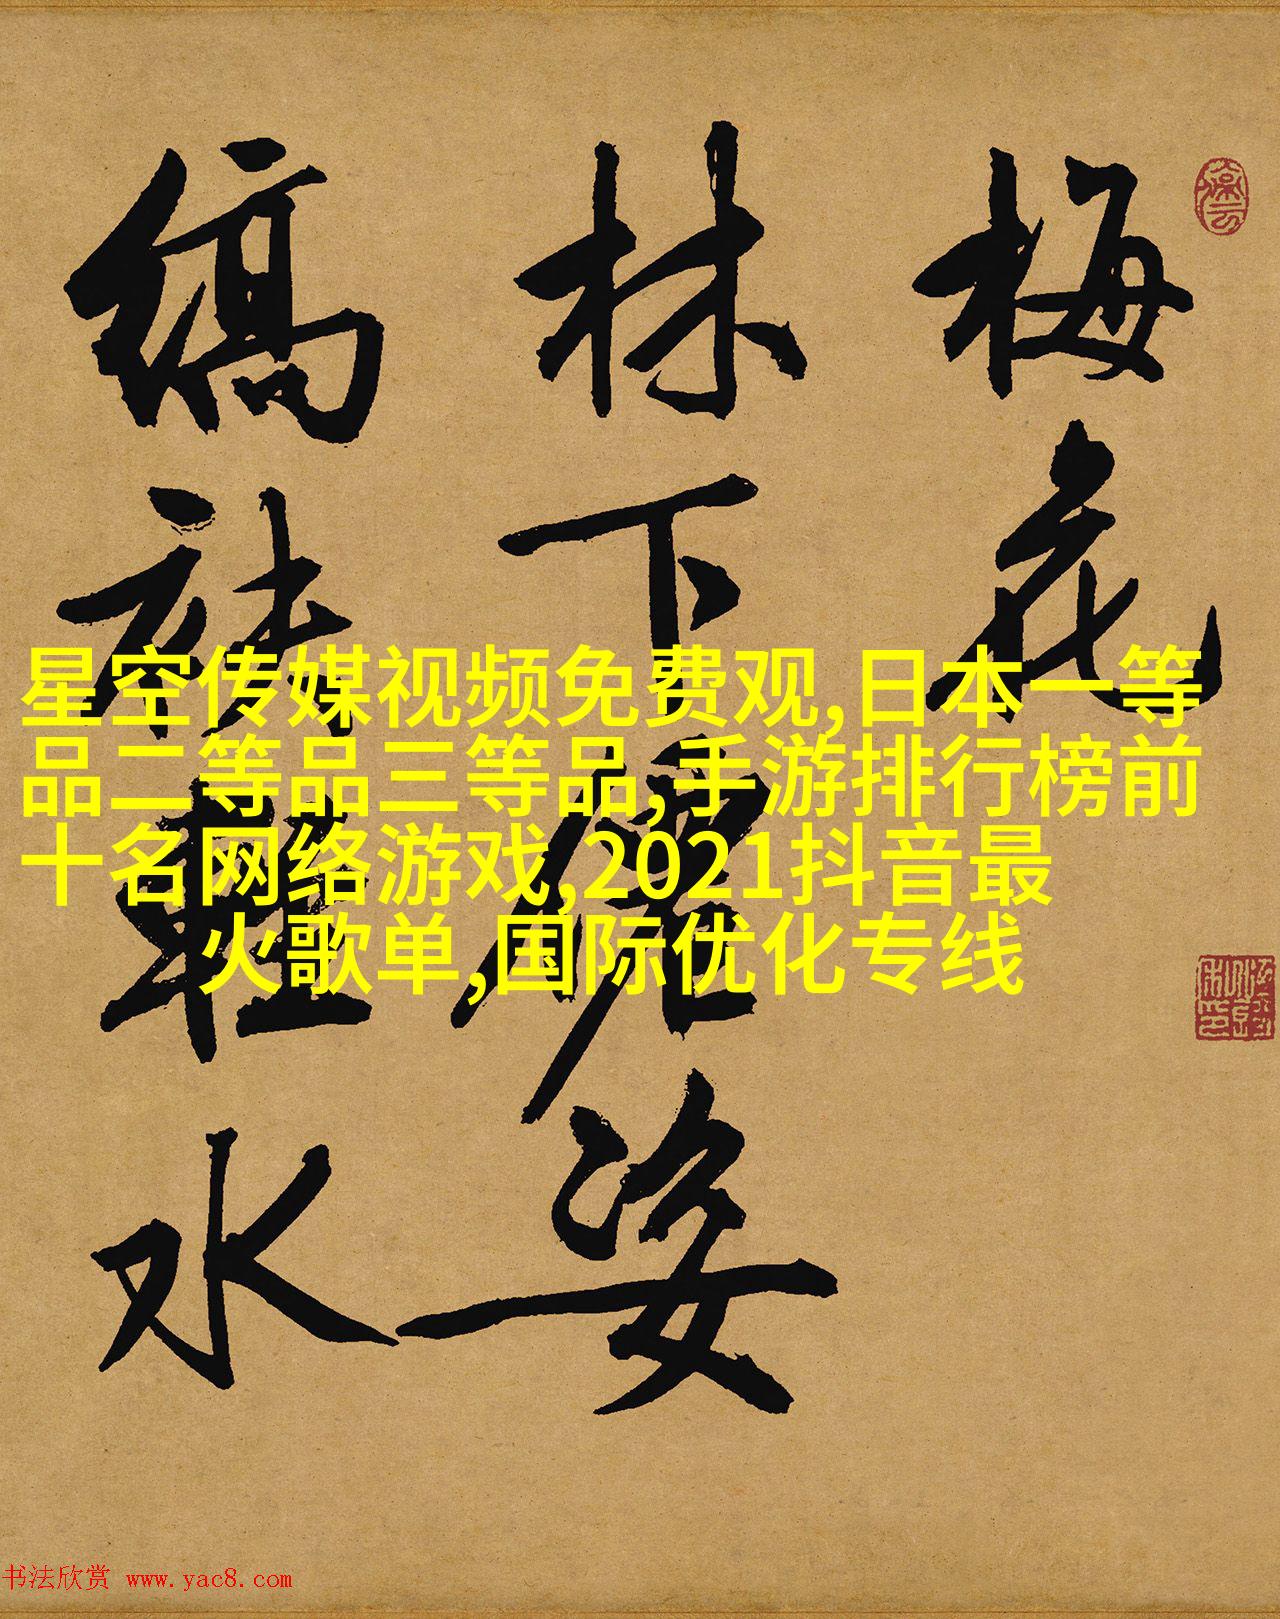 梅花
林下僊姿
縞袂輕水
星空传媒视频免费观,日本一等
品二等品三等品,手游排行榜前
十名网络游戏,2021抖音最
火歌单,国际优化专线
书法欣赏 www.yac8.com